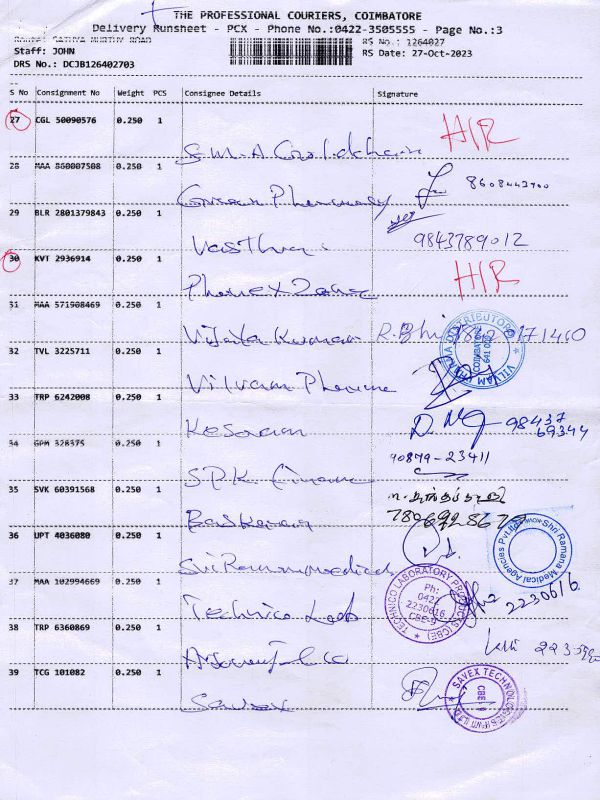 THE PROFESSIONAL COURIERS, COIMBATORE
Delivery Runsheet - PCX - Phone No.:0422-3505555 - Page No.:3
Route: SATHYA MURTHY ROAD
RS No.: 1264027
Staff: JOHN
RS Date: 27-Oct-2023
DRS No.: DCJB126402703
S No Consignment No Weight PCS Consignee Details Signature
27 CGL 50090576 0.250 1
S.M.A H/R
28 MAA 860007508 0.250 1
Pharmacy 8608443900
29 BLR 2801379843 0.250 1
9843789012
30 KVT 2936914 0.250 1
H/R
31 MAA 571908469 0.250 1
Vijaya Kumar
32 TVL 3225711 0.250 1
Vilvam Pharma
33 TRP 6242008 0.250 1
Kesavan 98437
69344
34 GPM 328375 0.250 1
S.P.K. Finance 90879-23411
35 SVK 60391568 0.250 1
Baskaran
36 UPT 4036080 0.250 1
Sri Ramana medical
Shri Ramana Medical Agencies Pvt.
37 MAA 102994669 0.250 1
Technico Lab 2230616
TECHNICO LABORATORY PRODUCTS (CBE) Ph: 0422 2230616 CBE-9
38 TRP 6360869 0.250 1
39 TCG 101082 0.250 1
Savex
SAVEX TECHNOLOGIES CBE